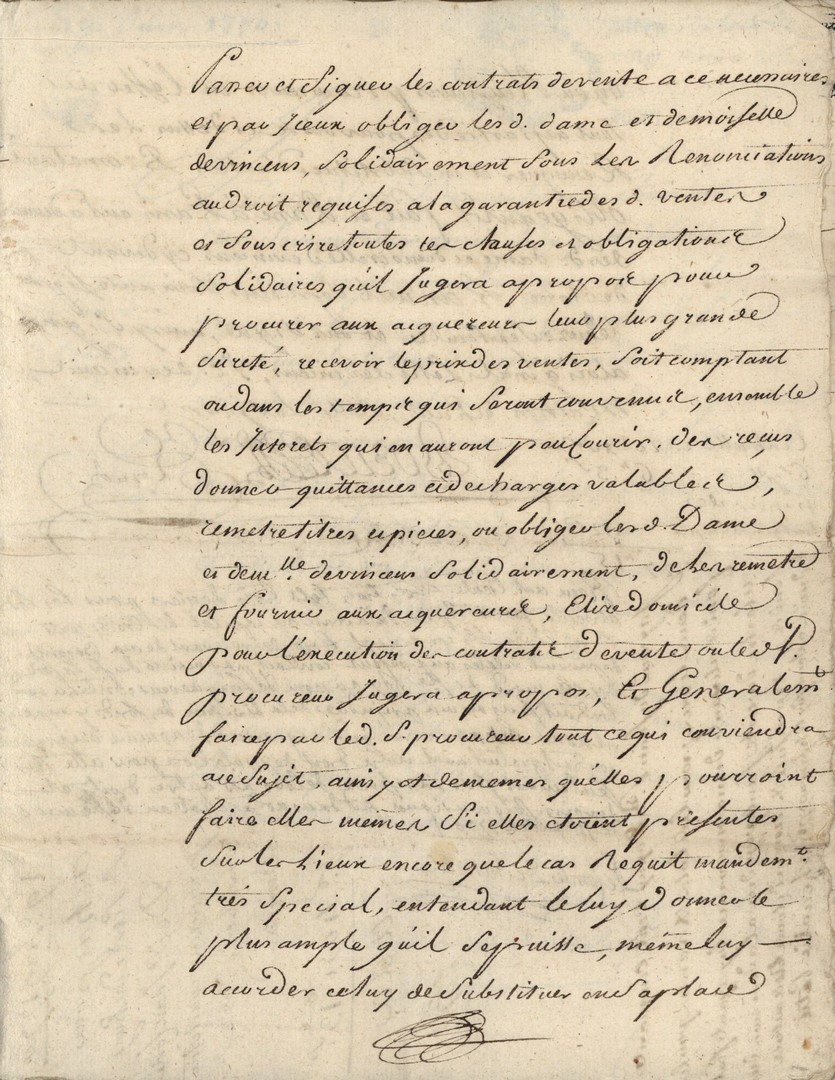 Passer et Signer les contrats de vente a ce necessaires
et par Iceux obliger les d. dame et demoiselle
devincens, Solidairement Sous les Renonciations
au droit requises a la garantie des d. ventes
et Souscrire toutes les clauses et obligations
Solidaires qu'il Jugera apropos pour
procurer aux acquereurs leur plus grande
Sureté, recevoir le prix des ventes, Soit comptant
ou dans les temps qui Seront convenus, ensemble
les Interets qui en auront pou Courir, des reçus
donner quittances et decharges valables,
remetre titres et pieces, ou obliger les d. Dame
et dem.lle devincens Solidairement, de les remetre
et fournir aux acquereurs, Elire domicile
pour l'éxecution des contrats de vente ou led. S.
procureur Jugera apropos, Et Generalemt
faire par led. S. procureur tout ce qui conviendra
au Sujet, ainsy et de memes qu'elles pourroint
faire elles mêmes Si elles etoient presentes
Sur les Lieux encore que le cas Requit mandem.t
trés Special, entendant le luy donner le
plus ample qu'il Se puisse, même luy
accorder celuy de Substituer en Sa place